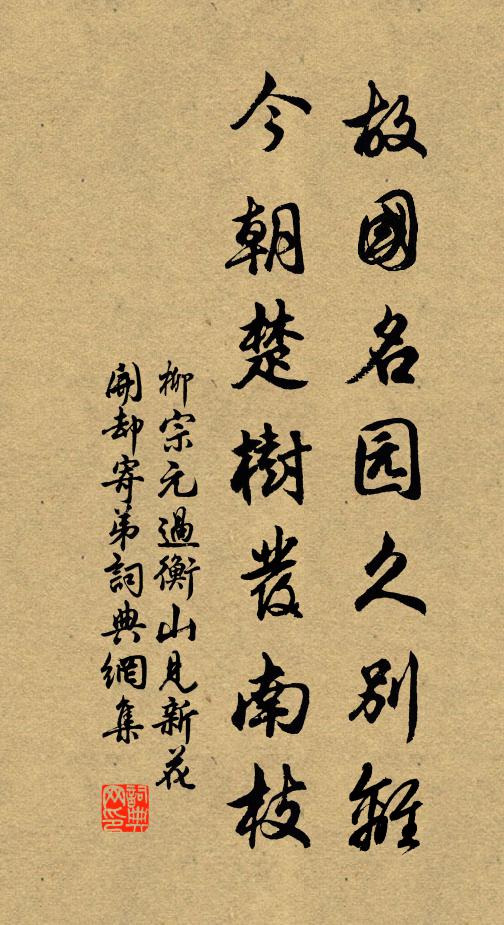 故國名园久別離
今朝楚樹發南枝
柳宗元過衡山見新花
開却寄弟詞典網集
詞典網印